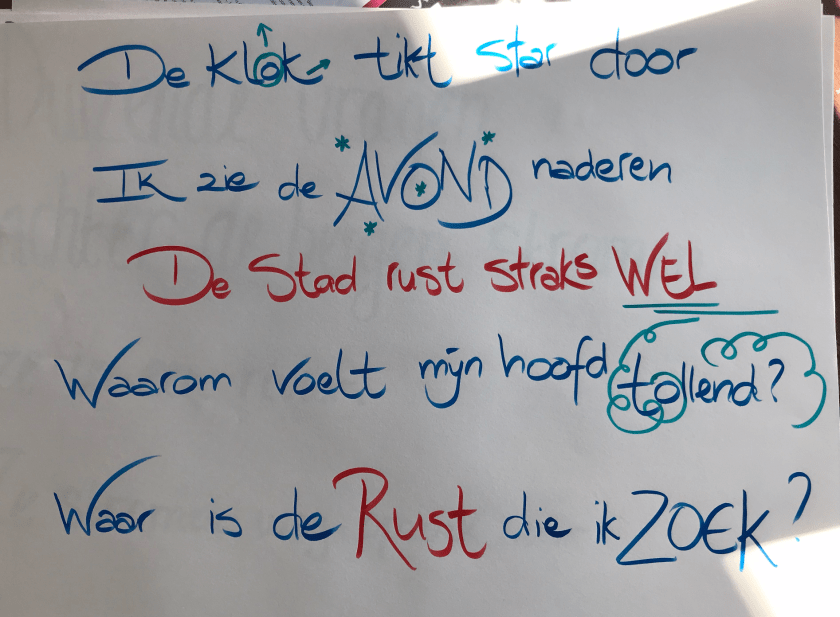 De Klok tikt star door
Ik zie de AVOND naderen
De Stad rust straks WEL
Waarom voelt mijn hoofd tollend?
Waar is de Rust die ik ZOEK?